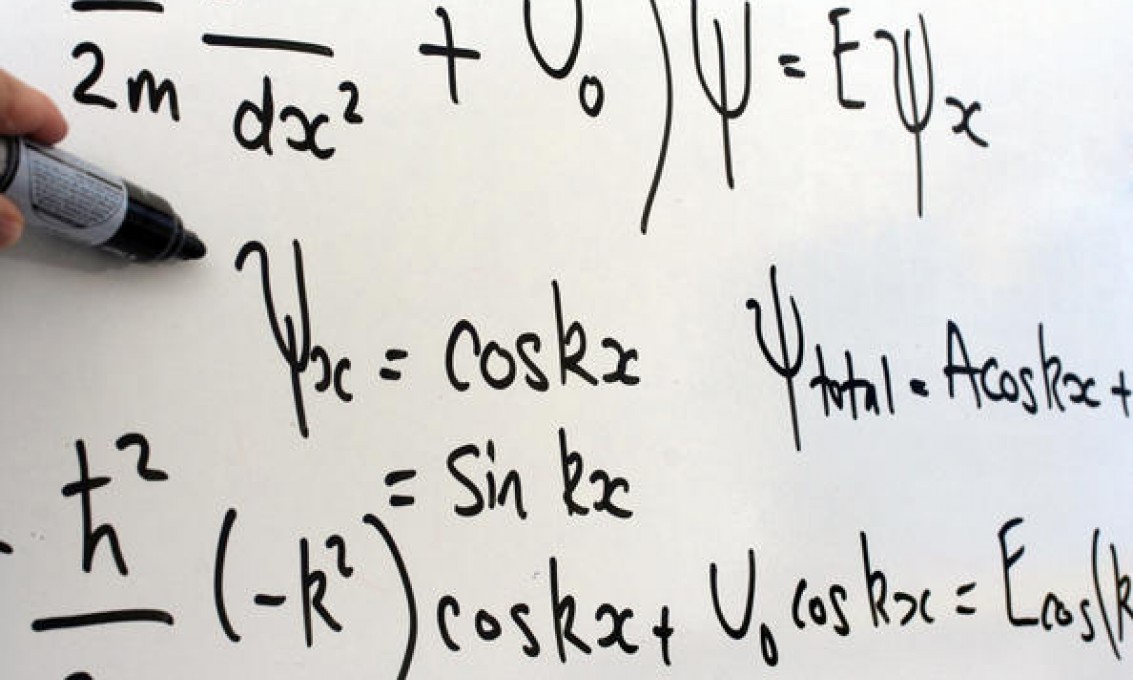 2m dx² + U₀ ) ψ = E ψₓ
ψₓ = coskx
ψtotal = Acoskx +
= Sin kx
- ħ² (-k²) coskx + U₀ coskx = E cos(k